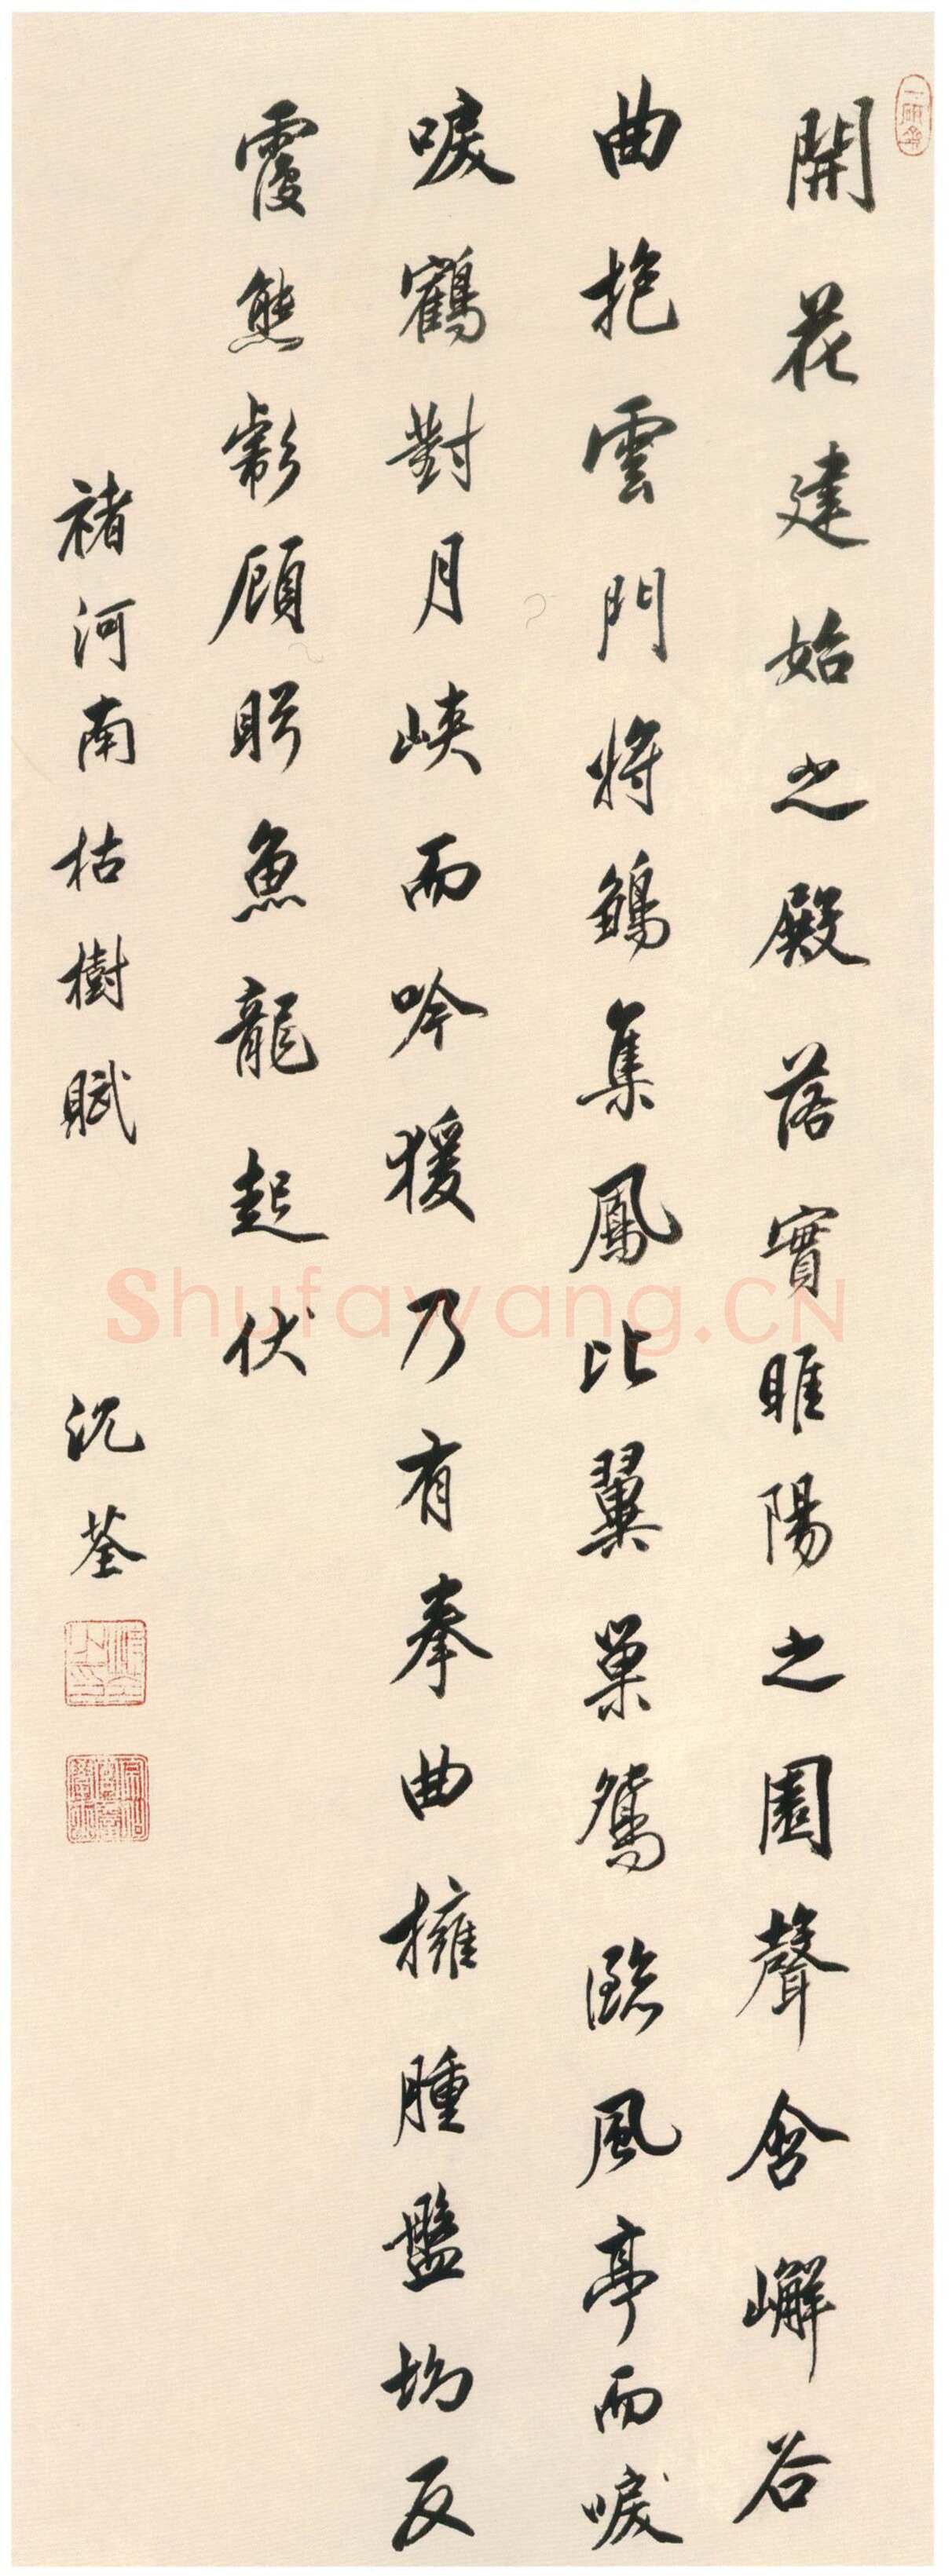 開花建始之殿落實睢陽之園聲含嶰谷
曲抱雲門將鶵集鳳比翼巢鴛臨風亭而唳
唳鶴對月峽而吟猨乃有拳曲擁腫盤坳反
覆熊彪顧眄魚龍起伏
褚河南枯樹賦 沈荃
Shufawang.CN